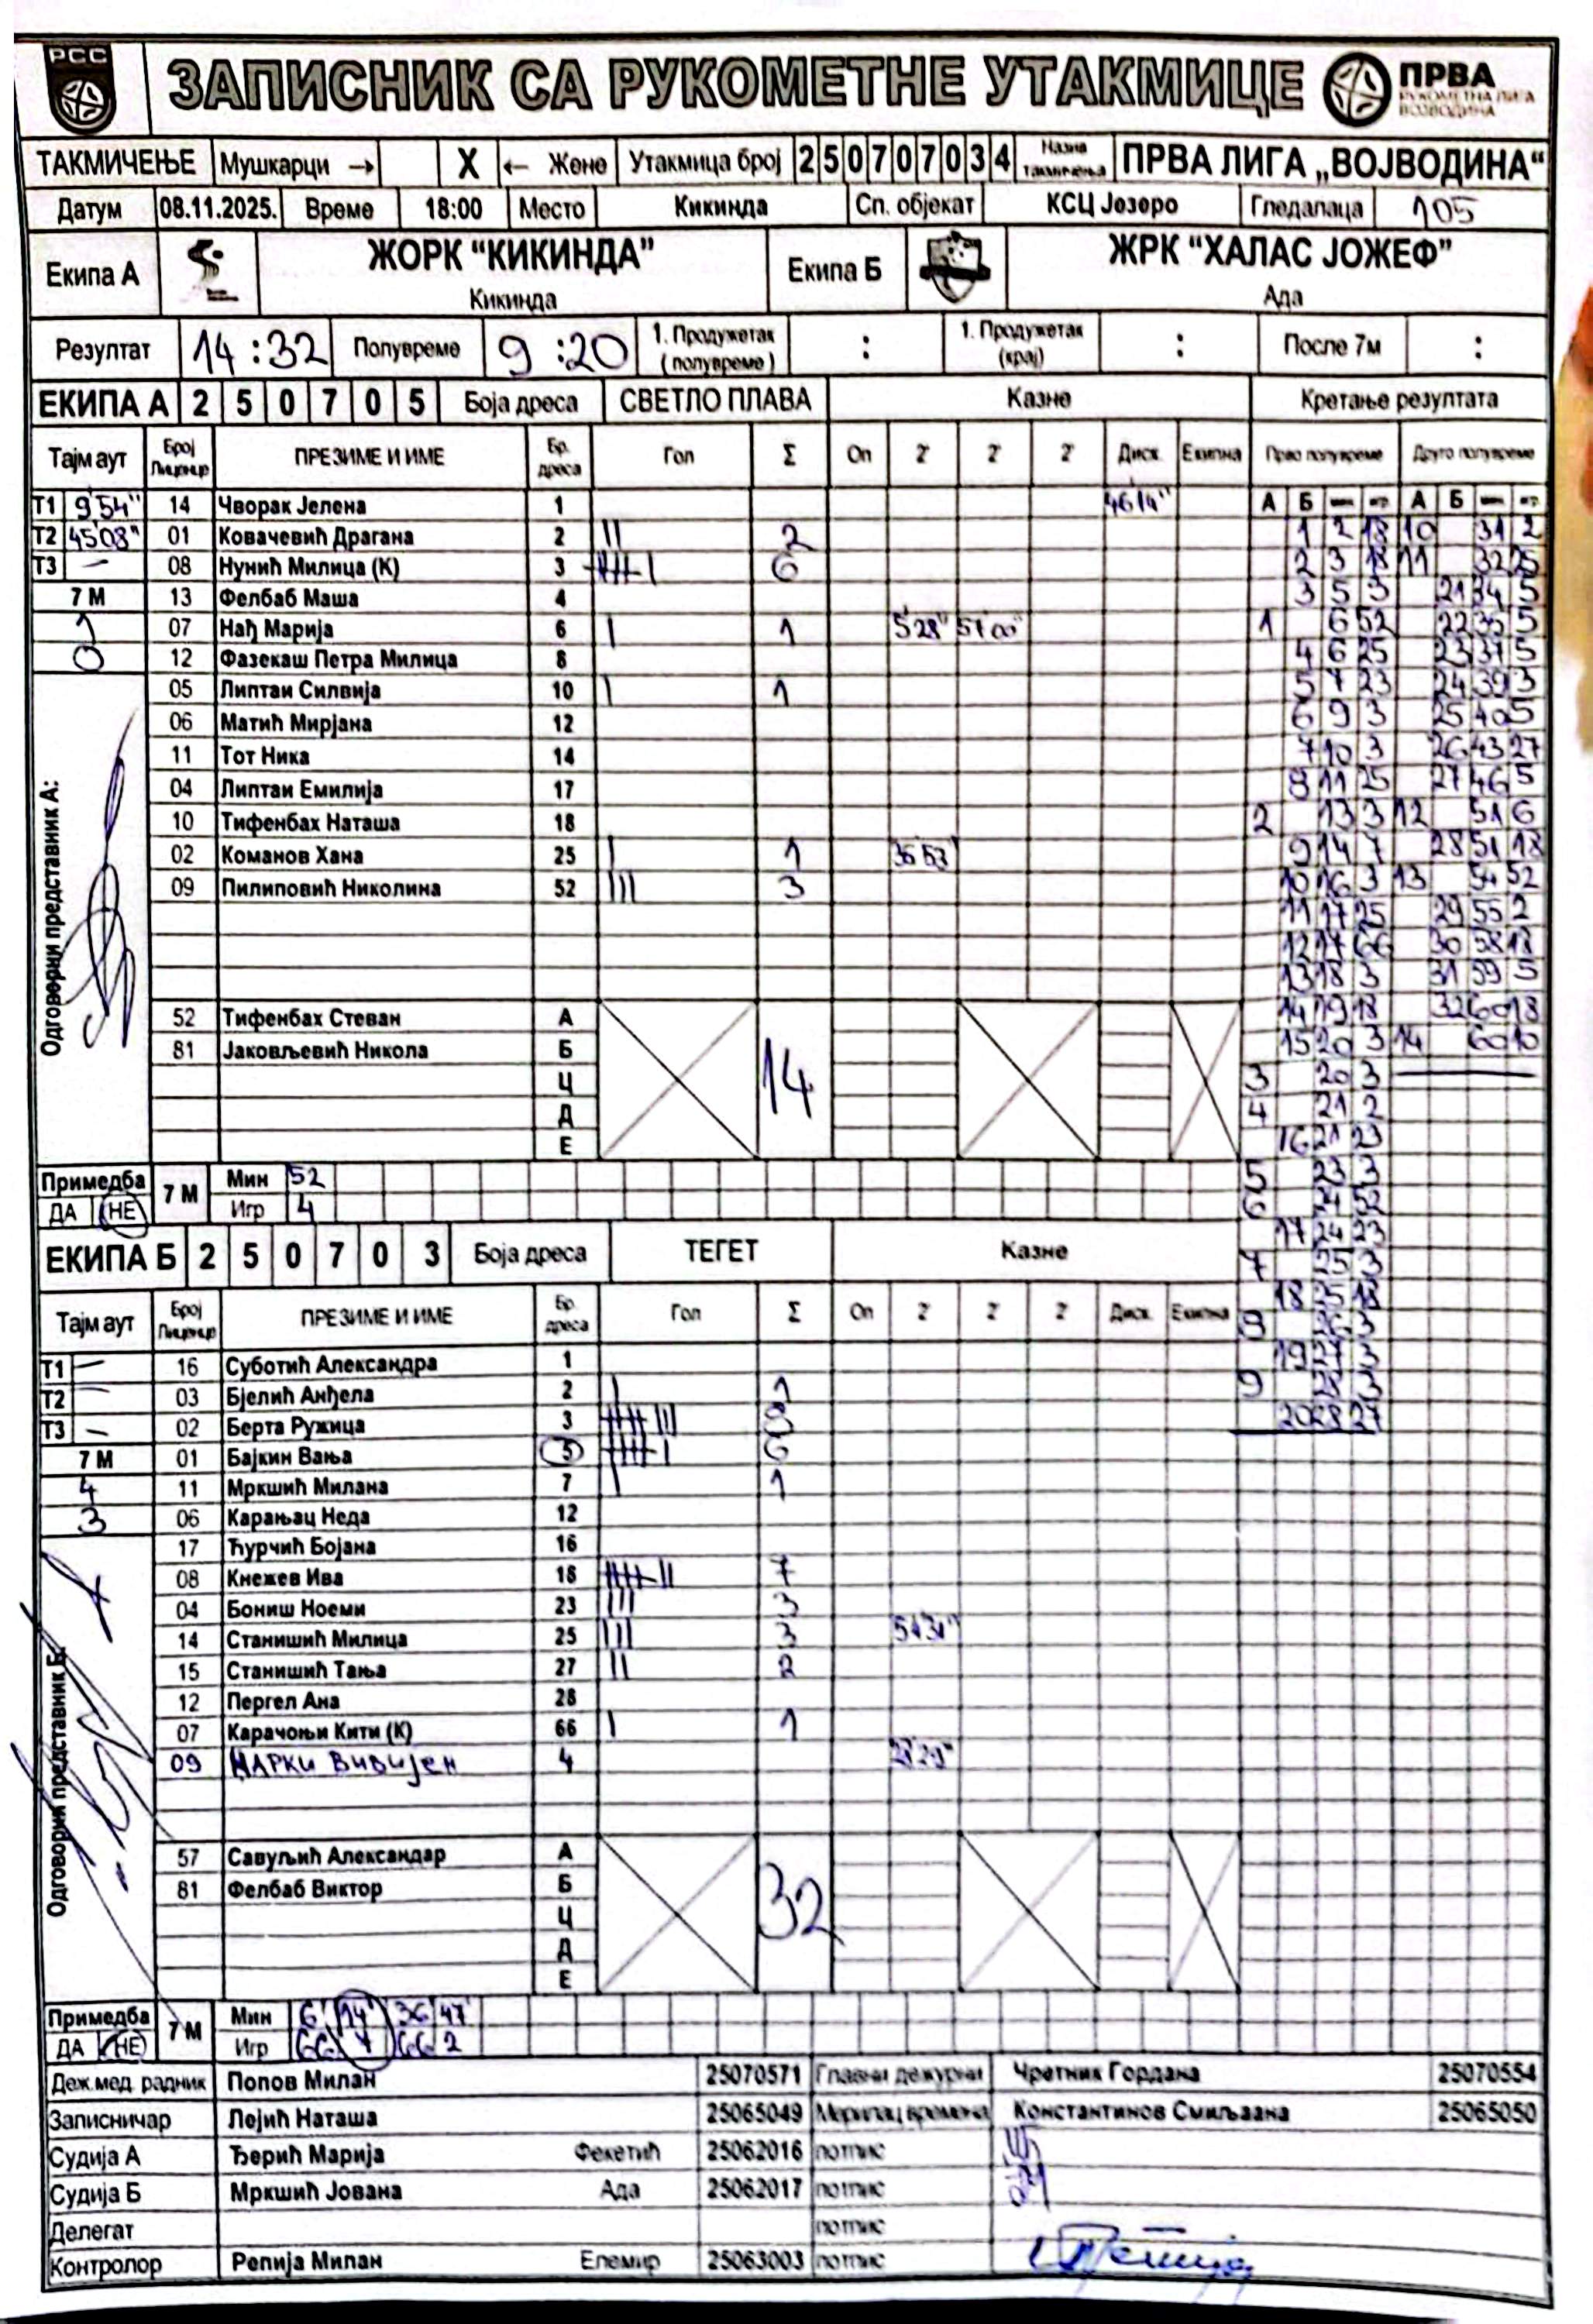 РСС
ЗАПИСНИК СА РУКОМЕТНЕ УТАКМИЦЕ
ПРВА РУКОМЕТНА ЛИГА ВОЈВОДИНА
ТАКМИЧЕЊЕ Мушкарци → X ← Жене Утакмица број 2 5 0 7 0 7 0 3 4 Назив такмичења ПРВА ЛИГА „ВОЈВОДИНА“
Датум 08.11.2025. Време 18:00 Место Кикинда Сп. објекат КСЦ Језеро Гледалаца 105
Екипа А ЖОРК “КИКИНДА” Кикинда Екипа Б ЖРК “ХАЛАС ЈОЖЕФ” Ада
Резултат 14 : 32 Полувреме 9 : 20 1. Продужетак (полувреме) : 1. Продужетак (крај) : После 7м :
ЕКИПА А 2 5 0 7 0 5 Боја дреса СВЕТЛО ПЛАВА Казне Кретање резултата
Тајм аут Број Лиценце ПРЕЗИМЕ И ИМЕ Бр. дреса Гол Σ Оп 2' 2' 2' Диск. Екипна Прво полувреме Друго полувреме
А Б мин иг А Б мин иг
Т1 9'54" 14 Чворак Јелена 1 46'14"
Т2 45'08" 01 Ковачевић Драгана 2 || 2
Т3 – 08 Нунић Милица (К) 3 6
7 М 13 Фелбаб Маша 4
1 07 Нађ Марија 6 | 1 5'28" 51'00"
0 12 Фазекаш Петра Милица 8
05 Липтаи Силвија 10 | 1
06 Матић Мирјана 12
11 Тот Ника 14
04 Липтаи Емилија 17
10 Тифенбах Наташа 18
02 Команов Хана 25 | 1 36'53"
09 Пилиповић Николина 52 ||| 3
52 Тифенбах Стеван А
81 Јаковљевић Никола Б
Ц
Д
Е
14
Одговорни представник А:
1 2 18 10 31 2
2 3 18 11 32 25
3 5 3 21 34 5
1 6 52 22 35 5
4 6 25 23 37 5
5 7 23 24 39 3
6 9 3 25 40 5
7 10 3 26 43 27
8 11 25 27 46 5
2 13 3 12 51 6
9 14 7 28 51 18
10 16 3 13 54 52
11 17 25 29 55 2
12 17 66 30 58 18
13 18 3 31 59 5
14 19 18 32 60 18
15 20 3 14 60 10
3 20 3
4 21 2
16 21 23
5 23 3
6 24 52
17 24 23
7 25 3
18 25 18
8 26 3
19 27 3
9 28 3
20 28 27
Примедба ДА НЕ 7 М Мин 52
Игр 4
ЕКИПА Б 2 5 0 7 0 3 Боја дреса ТЕГЕТ Казне
Тајм аут Број Лиценце ПРЕЗИМЕ И ИМЕ Бр. дреса Гол Σ Оп 2' 2' 2' Диск. Екипна
Т1 – 16 Суботић Александра 1
Т2 – 03 Бјелић Анђела 2 | 1
Т3 – 02 Берта Ружица 3 8
7 М 01 Бајкин Вања 5 6
4 11 Мркшић Милана 7 | 1
3 06 Карањац Неда 12
17 Ђурчић Бојана 16
08 Кнежев Ива 18 7
04 Бониш Ноеми 23 ||| 3
14 Станишић Милица 25 ||| 3 51'31"
15 Станишић Тања 27 || 2
12 Пергел Ана 28
07 Карачоњи Кити (К) 66 | 1
09 МАРКИ ВИВИЈЕН 4 28'29"
57 Савуљић Александар А
81 Фелбаб Виктор Б
Ц
Д
Е
32
Одговорни представник Б:
Примедба ДА НЕ 7 М Мин 6' 14' 36' 47'
Игр 66 7 66 2
Деж.мед. радник Попов Милан 25070571 Главни дежурни Чретник Гордана 25070554
Записничар Лејић Наташа 25065049 Мерилац времена Константинов Смиљана 25065050
Судија А Ђерић Марија Фекетић 25062016 потпис
Судија Б Мркшић Јована Ада 25062017 потпис
Делегат потпис
Контролор Репија Милан Елемир 25063003 потпис